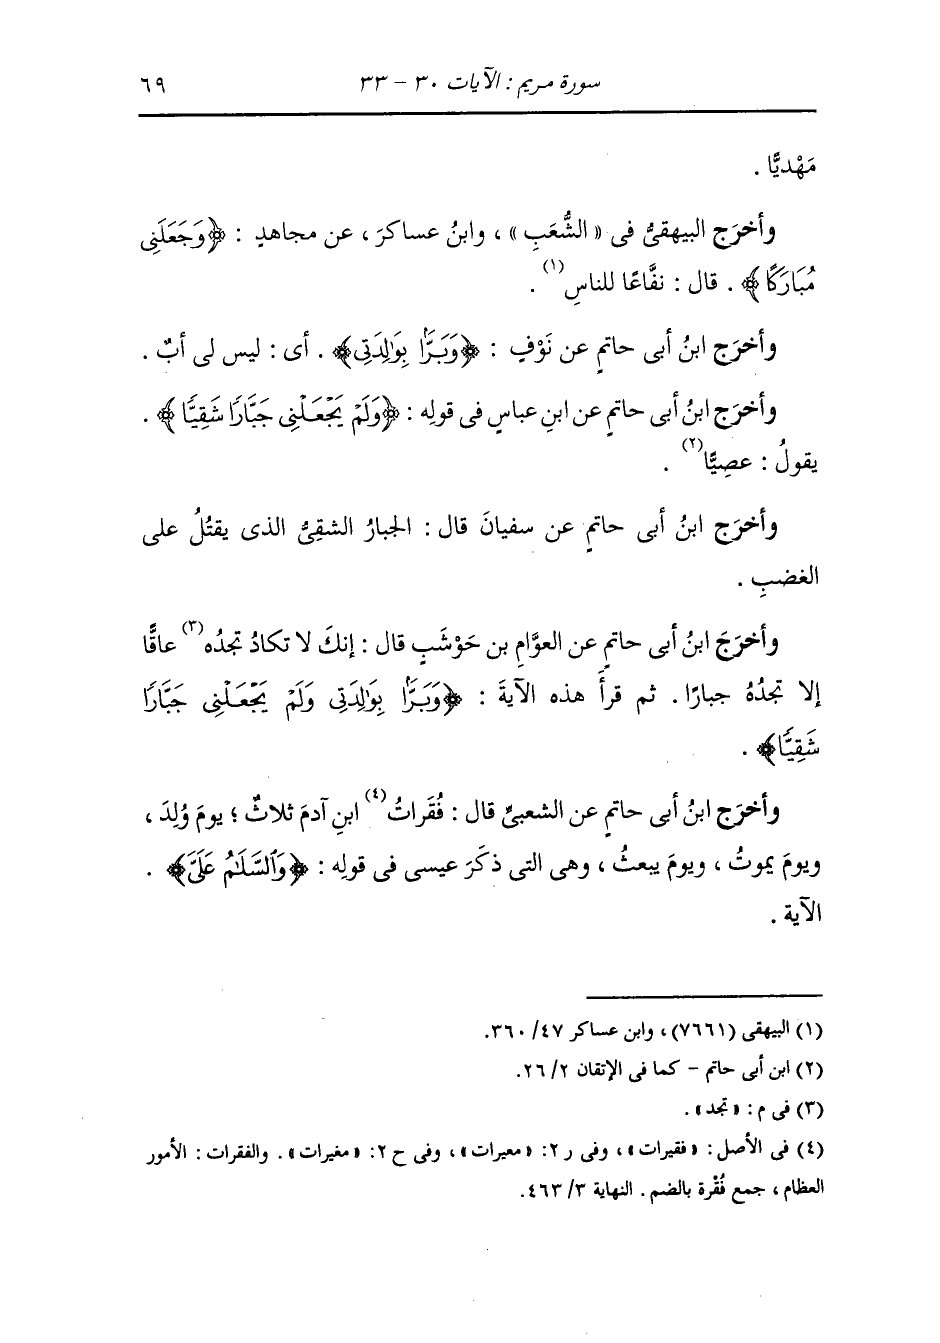 سورة مريم : الآيات ٣٠ - ٣٣ ٦٩
مَهْديًّا .
وأخرَج البيهقىُّ فى « الشُّعَبِ » ، وابنُ عساكرَ ، عن مجاهدٍ : ﴿وَجَعَلَنِى
مُبَارَكًا﴾ . قال : نفَّاعًا للناسِ(١) .
وأخرَج ابنُ أبى حاتمٍ عن نَوْفٍ : ﴿وَبَرًّۢا بِوَٰلِدَتِى﴾ . أى : ليس لى أبٌ .
وأخرَج ابنُ أبى حاتمٍ عن ابنِ عباسٍ فى قولِه : ﴿وَلَمْ يَجْعَلْنِى جَبَّارًا شَقِيًّا﴾ .
يقولُ : عصِيًّا(٢) .
وأخرَج ابنُ أبى حاتمٍ عن سفيانَ قال : الجبارُ الشقِىُّ الذى يقتُلُ على
الغضبِ .
وأخرَجَ ابنُ أبى حاتمٍ عن العوَّامِ بن حَوْشَبٍ قال : إنكَ لا تكادُ تجدُه(٣) عاقًّا
إلا تجدُهُ جبارًا . ثم قرأَ هذه الآيةَ : ﴿وَبَرًّۢا بِوَٰلِدَتِى وَلَمْ يَجْعَلْنِى جَبَّارًا
شَقِيًّا﴾ .
وأخرَج ابنُ أبى حاتمٍ عن الشعبىِّ قال : فُقَراتُ(٤) ابنِ آدمَ ثلاثٌ ؛ يومَ وُلِدَ ،
ويومَ يموتُ ، ويومَ يبعثُ ، وهى التى ذكَرَ عيسى فى قولِه : ﴿وَٱلسَّلَٰمُ عَلَىَّ﴾ .
الآية .
(١) البيهقى (٧٦٦١) ، وابن عساكر ٤٧/ ٣٦٠.
(٢) ابن أبى حاتم - كما فى الإتقان ٢/ ٢٦.
(٣) فى م : « تجد » .
(٤) فى الأصل : « فقيرات » ، وفى ر ٢: « معيرات » ، وفى ح ٢: « مغيرات » . والفقرات : الأمور
العظام ، جمع فُقْرة بالضم . النهاية ٣/ ٤٦٣.